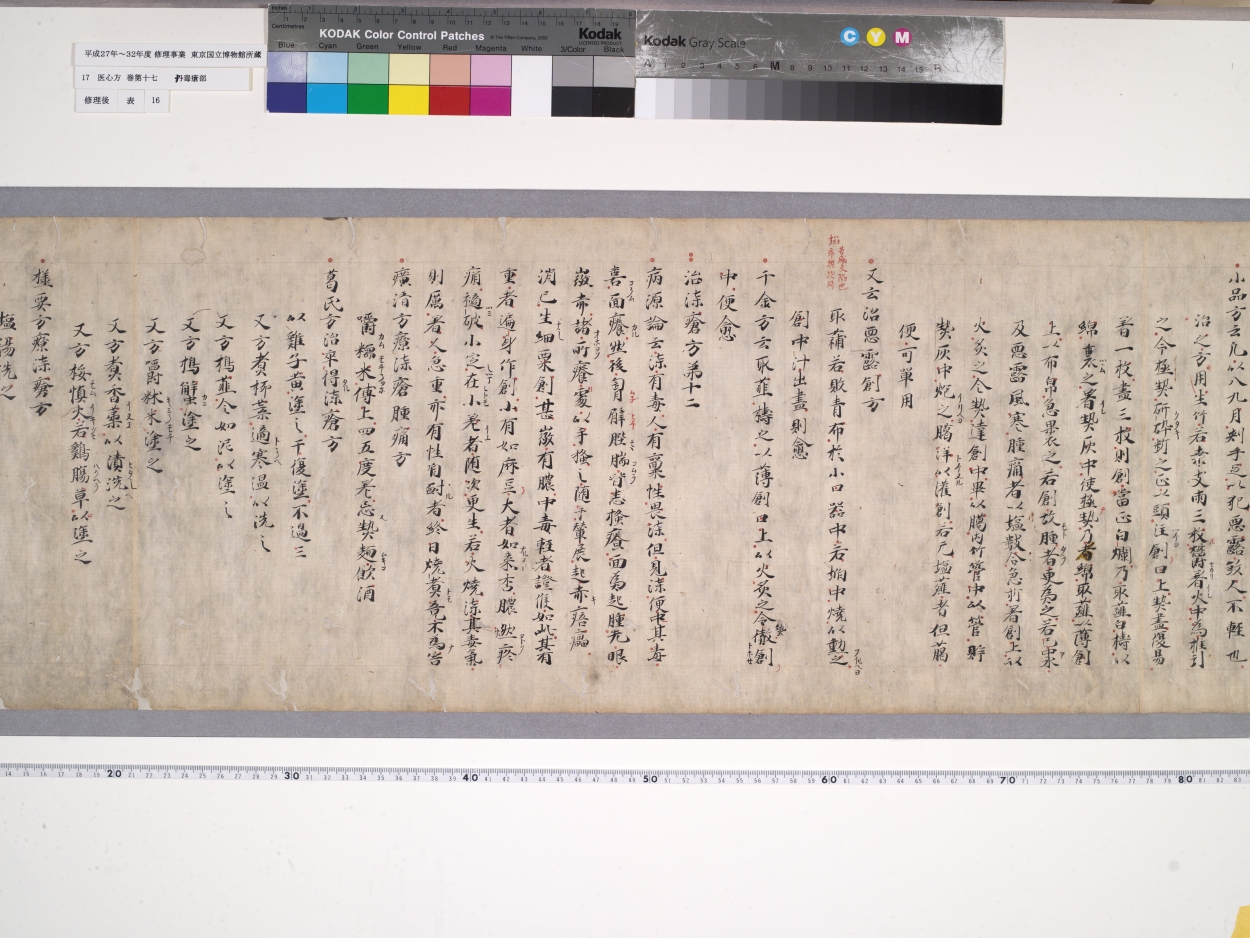 平成27年〜32年度 修理事業 東京国立博物館所蔵
17 医心方 巻第十七 丹毒瘡部
修理後 表 16
KODAK Color Control Patches
Kodak
LICENSED PRODUCT
Blue Cyan Green Yellow Red Magenta White 3/Color Black
Kodak Gray Scale
C Y M
小品方云凡以八九月刺手足以犯惡露煞人不輕也
治之方用生竹若桑支兩三枚㷛著火中為推到
之令極熱斫碎斷之正以頭注創口上熱盡復易
著一枚盡三枚則創當正白爛乃取薤白擣以
綿裹之著熱灰中使極熱乃著綿取薤以薄創
上以布帛急裹之若創故腫者更為之若已中水
及惡露風寒腫痛者以塩數合急折著創上以
火炙之令熱達創中畢以臈內竹管中以管貯
熱灰中炮之臈詳以灌創若无塩薤者但臈
便可單用
又云治惡露創方
取補若敗青布於小口器中若㷛中燒以勳之
創中汁出盡則愈
千金方云取薤擣之以薄創口上以火炙之令徹創
中便愈
治漆瘡方第十二
病源論云漆有毒人有稟性畏漆但見漆便中其毒
喜面癢然後胷臂䏶腨皆悉搔癢面為起腫光眼
微赤諸所癢處以手搔之隨手輦展起赤㾦㿔
消已生細粟創甚微有膿中毒輕者證候如此其有
重者遍身作創小有如麻豆大者如棗杏膿㷔疼
痛摘破小定在小差者随次更生若火燒漆其毒氣
則厲著人急重亦有性自耐者終日燒煮竟不為害
癀消方療漆瘡腫痛方
嚼糯米傅上四五度差忌熱麵飲酒
葛氏方治卒得漆瘡方
以雞子黄塗之干復塗不過三
又方煮柳葉適寒温以洗之
又方擣薤令如泥以塗之
又方擣蟹塗之
又方嚼秫米塗之
又方煮香薷以漬洗之
又方挼慎火若鷄膓草以塗之
樣要方療漆瘡方
塩湯洗之
20 30 40 50 60 70 80